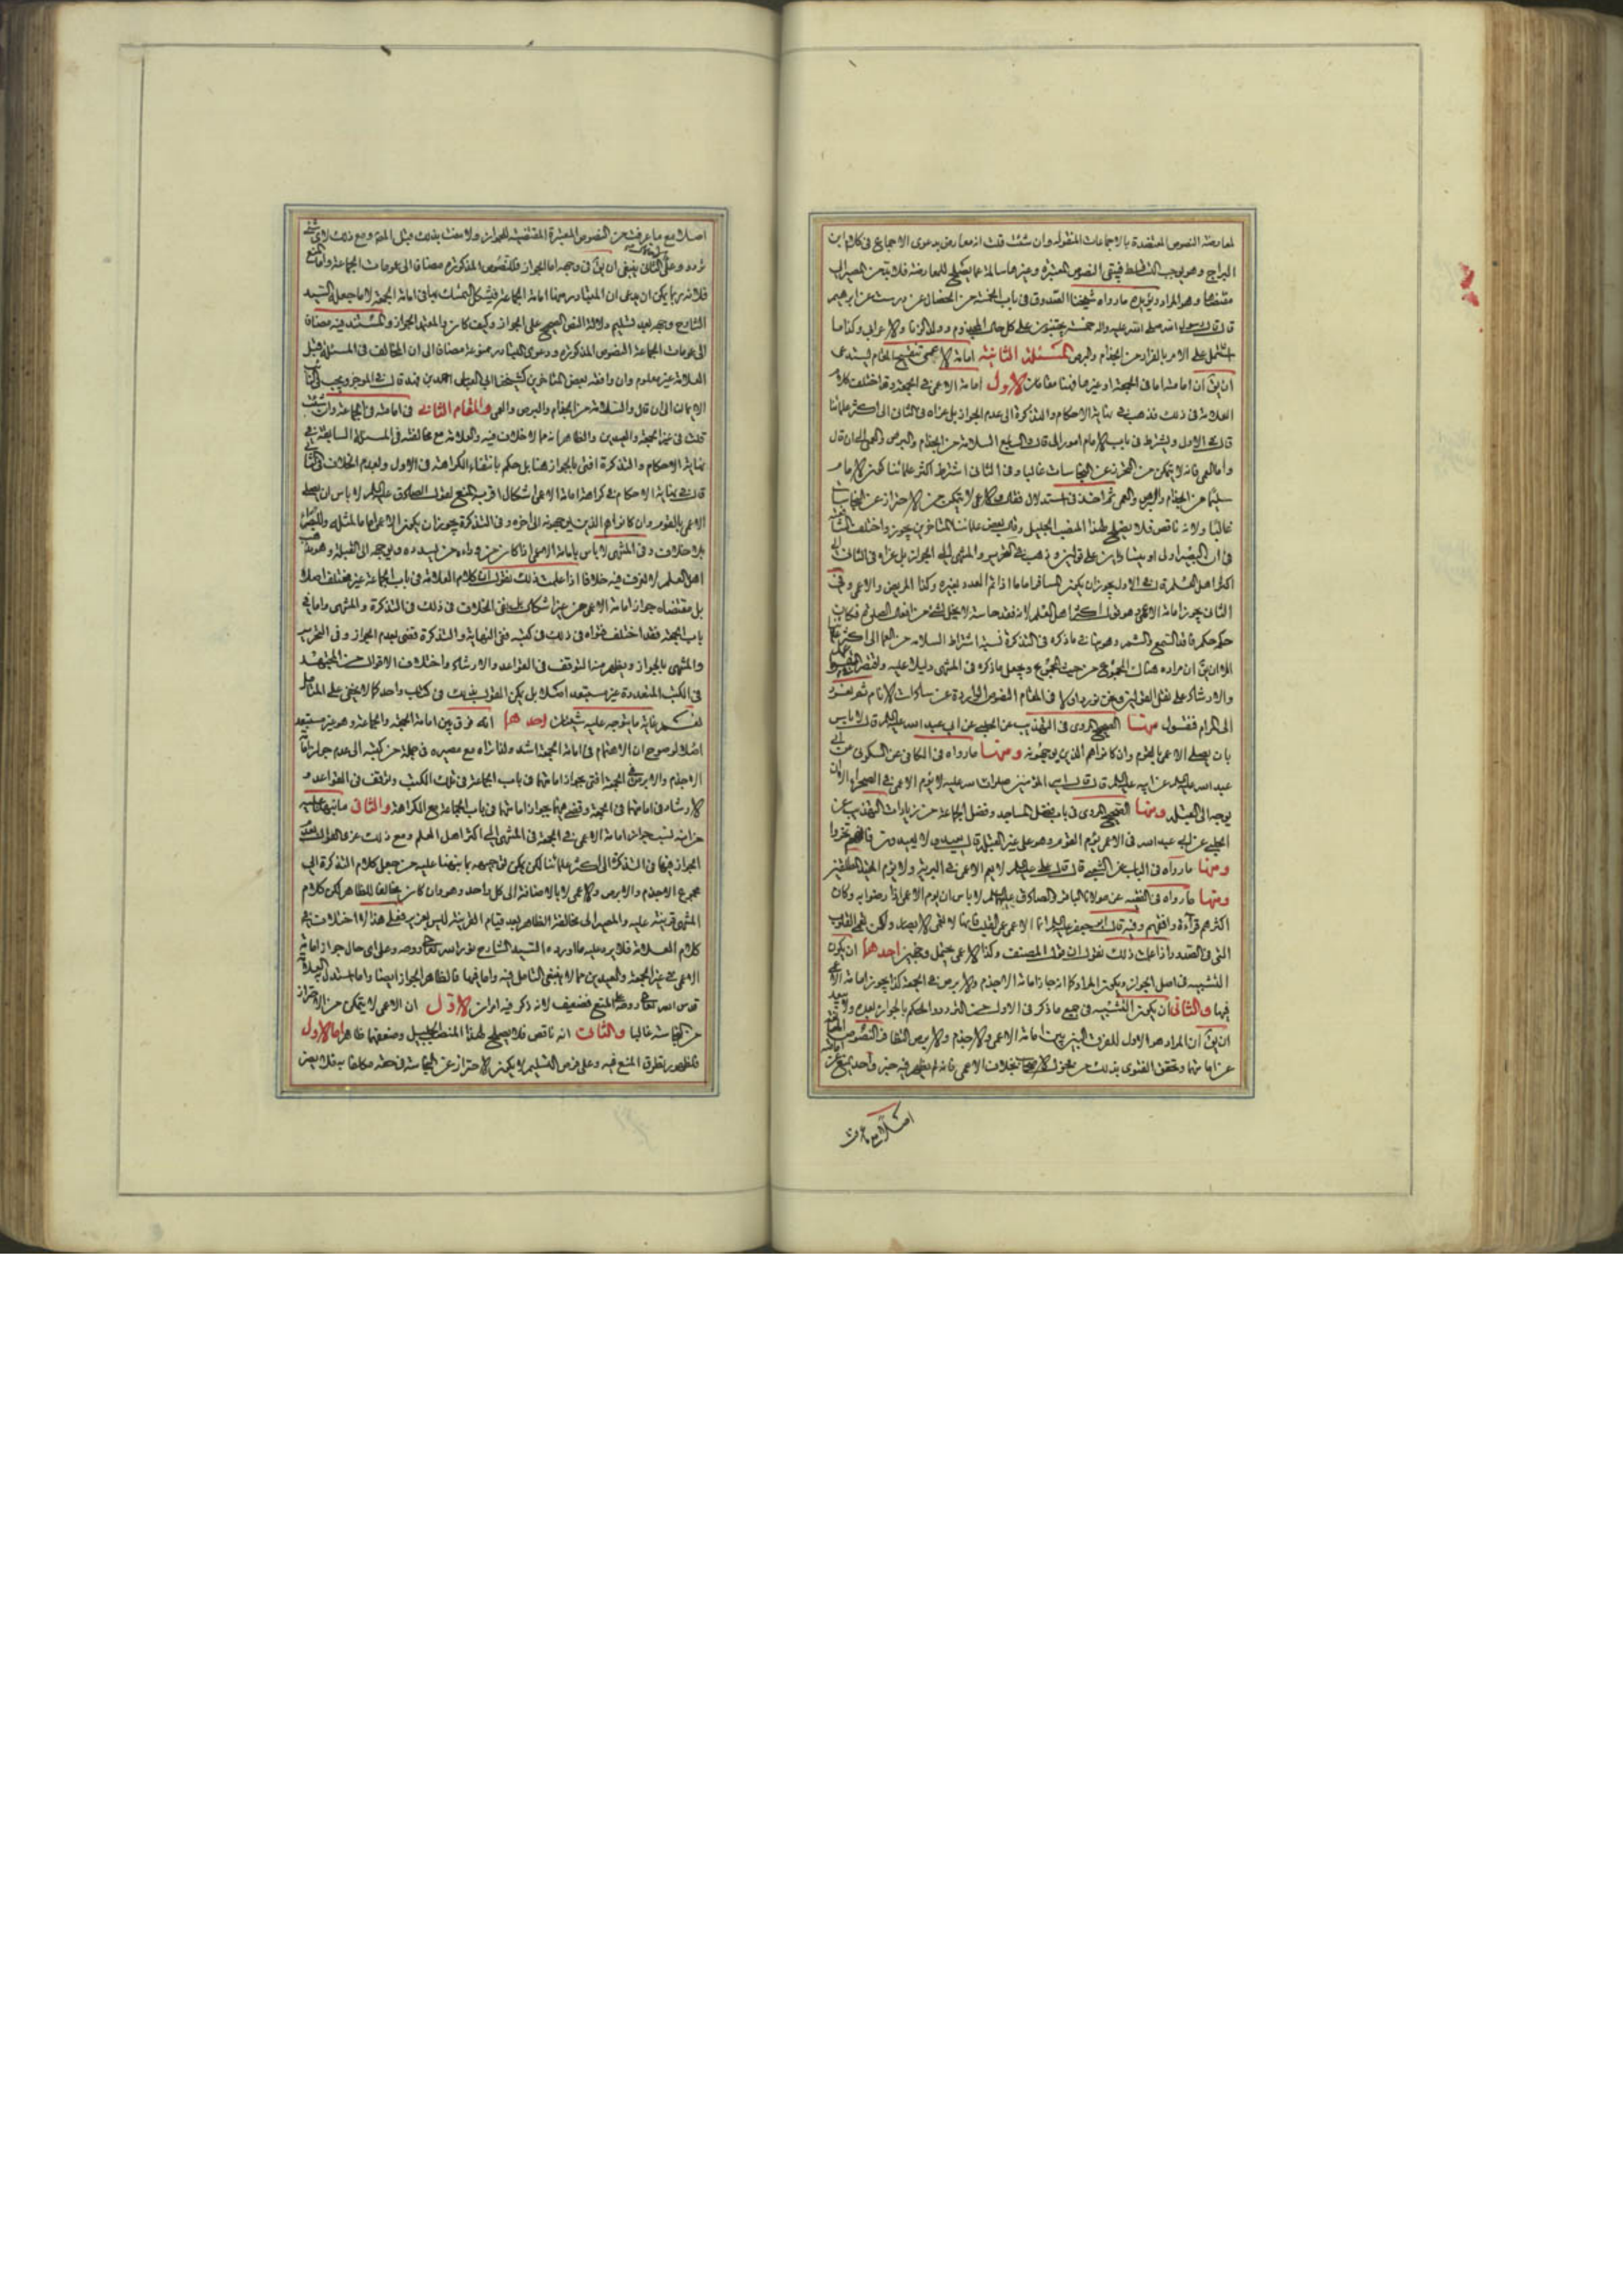 لمعارضة النصوص المعتضدة بالاجماعات المنقولة وان شئت قلت انه معارض بدعوى الاجماع فى كلام ابن
البراج وهو يوجب التساقط فيبقى النصوص المعتبرة وغيرها سالمة عما يصلح للمعارضة فلا بد من المصير الى
مقتضاها وهو المراد ويؤيده ما رواه شيخنا الصدوق فى باب الخمسة من الخصال عن درست عن ابرهيم
قال قال رسول الله صلى الله عليه واله خمسة يجتنبون على كل حال المجذوم وولد الزنا والاعرابى وكذا ما
اشتمل على الامر بالفرار من الجذام والبرص المسئلة الثانية امامة الاعمى تنقيح المقام يستدعى
ان يق ان امامته اما فى الجمعة او غيرها فهنا مقامات الاول امامة الاعمى فى الجمعة وقد اختلف كلام
العلامة فى ذلك فذهب فى نهاية الاحكام والتذكرة الى عدم الجواز بل عزاه فى الثانى الى اكثر علمائنا
قال فى الاول ويشترط فى باب الامام امور الى قال والسابع السلامة من الجذام والبرص والعمى الى ان قال
واما العمى فانه لا يتمكن من التحرز عن النجاسات غالبا وفى الثانى اشترط اكثر علمائنا كون الامام
سليما من الجذام والبرص والعمى ثم اخذ فى استدلال فقال والاعمى لا يتمكن من الاحتراز عن النجاسات
غالبا ولانه ناقص فلا يصلح لهذا المنصب الجليل وقال بعض علمائنا المتاخرين يجوز واختلف الشافعية
فى ان البصير اولى او يتساويان على قولين وذهب فى التحرير والمنتهى الى الجواز بل عزاه فى الثانى الى
اكثر اهل العلم قال فى الاول يجوز ان يكون المسافر اماما اذا تم العدد بغيره وكذا المريض والاعمى وفى
الثانى يجوز امامة الاعمى وهو قول اكثر اهل العلم لانه فقد حاسة لا يخل بشئ من افعال الصلوة فكان
حكمه حكم فاقد السمع والشم وهو ينافى ما ذكره فى التذكرة نسبة اشتراط السلامة من العمى الى اكثر علمائنا
الا ان يق ان مراده هناك المجموع من حيث المجموع ويجعل ما ذكره فى المنتهى دليلا عليه واقتصر
والارشاد على نقل القولين ونحن نورد اولا فى المقام النصوص الواردة عن سادات الانام ثم نعود
الى المرام فنقول منها الصحيح المروى فى التهذيب عن الحلبى عن ابى عبد الله عليه السلام قال لا باس
بان يصلى الاعمى بالقوم وان كانوا هم الذين يوجهونه ومنها ما رواه فى الكافى عن السكونى عن ابى
عبد الله عليه السلام عن ابيه عليه السلام قال قال امير المؤمنين صلوات الله عليه لا يؤم الاعمى فى الصحراء الا ان
يوجه الى القبلة ومنها الصحيح المروى فى باب فضل المساجد وفضل الجماعة من زيادات التهذيب عن
الحلبى عن ابى عبد الله فى الاعمى يؤم القوم وهو على غير القبلة قال يعيد ولا يعيدون فانهم تحروا
ومنها ما رواه فى الباب عن الشعبى قال قال على عليه السلام لا يؤم الاعمى فى البرية ولا يؤم المقيد المطلقين
ومنها ما رواه فى الفقيه عن مولانا الباقر والصادق عليهما السلام لا باس ان يؤم الاعمى اذا رضوا به وكان
اكثرهم قراءة وافقههم وفيه قال ابو جعفر عليه السلام انما الاعمى عمى القلب فانها لا تعمى الابصار ولكن تعمى القلوب
التى فى الصدور اذا علمت ذلك نقول ان قول المصنف وكذا الاعمى يحتمل وجهين احدهما ان يكون
التشبيه فى اصل الجواز ويكون المراد كما انه جاز امامة الاجذم والابرص فى الجمعة كذا يجوز امامة الاعمى
فيها والثانى ان يكون التشبيه فى جميع ما ذكر فى الاول من التردد والحكم بالجواز بعده ولا يبعد
ان يق ان المراد هو الاول للفرق البين بين امامة الاعمى والاجذم والابرص
عن امامتهما وتحقق الفتوى بذلك من بخلاف الاعمى فانه لم يظهر فيه خبر واحد يمنع عن امامته
اصلا مع ما عرفت
اصلا مع ما عرفت من النصوص المعتبرة المقتضية للجواز ولا مفت بذلك قبل العلامة ومع ذلك لاى شئ
تردد وعلى الثانى ينبغى ان يق فى وجهه اما الجواز فللنصوص المذكورة مضافا الى عمومات الجماعة واما المنع
فلانه ربما يمكن ان يدعى ان المتبادر منها امامة الجماعة فيشكل التمسك بها فى امامة الجمعة لا ما جعله السيد
الشارح وجهه بعد تسليم دلالة النص الصحيح على الجواز وكيف كان فالمعتمد الجواز والمستند فيه مضافا
الى عمومات الجماعة النصوص المذكورة ودعوى التبادر ممنوعة مضافا الى ان المخالف فى المسئلة قبل
العلامة غير معلوم وان وافقه بعض المتاخرين كشيخنا ابى العباس احمد بن فهد قال فى الموجز ويجب
الايمان الى ان قال والسلامة من الجذام والبرص والعمى والمقام الثانى فى امامته فى الجماعة وان شئت
قلت فى غير الجمعة والعيدين والظاهر انه مما لا خلاف فيه والعلامة مع مخالفته فى المسئلة السابقة فى
نهاية الاحكام والتذكرة افتى بالجواز هنا بل حكم بانتفاء الكراهة فى الاول وبعدم الخلاف فى الثانى
قال فى نهاية الاحكام فى كراهة امامة الاعمى اشكال اقربه المنع لقول الصادق عليه السلام لا باس ان يصلى
الاعمى بالقوم وان كانوا هم الذين يوجهونه الى اخره وفى التذكرة يجوز ان يكون الاعمى اماما لمثله وللبصراء
بلا خلاف وفى المنتهى لا باس بامامة الاعمى اذا كان من وراءه من يسدده ويوجهه الى القبلة وهو مذهب
اهل العلم لا نعرف فيه خلافا اذا علمت ذلك نقول ان كلام العلامة فى باب الجماعة غير مختلف اصلا
بل مقتضاه جواز امامة الاعمى من غير اشكال بل نفى الخلاف فى ذلك فى التذكرة والمنتهى واما فى
باب الجمعة فقد اختلف فتواه فى ذلك فى كتبه ففى النهاية والتذكرة قضى بعدم الجواز وفى التحرير
والمنتهى بالجواز ويظهر منه التوقف فى القواعد والارشاد واختلاف الاقوال من المجتهد
فى الكتب المتعددة غير مستبعد اصلا بل يمكن القول بذلك فى كتاب واحد كما لا يخفى على المتامل
نعم غاية ما يتوجه عليه شيئان احدهما انه فرق بين امامة الجمعة والجماعة وهو غير مستبعد
اصلا لوضوح ان الاهتمام فى امامة الجمعة اشد ولذا تراه مع مصيره فى جملة من كتبه الى عدم جواز امامة
الاجذم والابرص فى الجمعة افتى بجواز امامتهما فى باب الجماعة فى تلك الكتب وتوقف فى القواعد و
الارشاد فى امامتهما فى الجمعة وقضى فيهما جواز امامتهما فى باب الجماعة مع الكراهة والثانى ما نبهنا عليه
من انه نسب جواز امامة الاعمى فى الجمعة فى المنتهى الى اكثر اهل العلم ومع ذلك عزى القول بعدم
الجواز فيها فى التذكرة الى اكثر علمائنا لكن يمكن توجيهه بما نبهنا عليه من جعل كلام التذكرة الى
مجموع الاجذم والابرص والاعمى لا بالاضافة الى كل واحد وهو وان كان مخالفا للظاهر لكن كلام
المنتهى قرينة عليه والمصير الى مخالفة الظاهر بعد قيام القرينة ليس بعزيز فعلى هذا لا اختلاف فى
كلام العلامة فلا يرد عليه ما اورده السيد الشارح نور الله تعالى روحه وعلى اى حال جواز امامة
الاعمى فى غير الجمعة والعيدين مما لا ينبغى التامل فيه واما فيهما فالظاهر الجواز ايضا واما استدل به العلامة
قدس الله تعالى روحه على المنع فضعيف لانه ذكر فيه امران الاول ان الاعمى لا يتمكن من الاحتراز
من النجاسة غالبا والثانى انه ناقص فلا يصلح لهذا المنصب الجليل وضعفهما ظاهر اما الاول
فلظهور تطرق المنع فيه وعلى فرض التسليم لا يكون الاحتراز عن النجاسة فى حقه مكلفا به فلا يضر